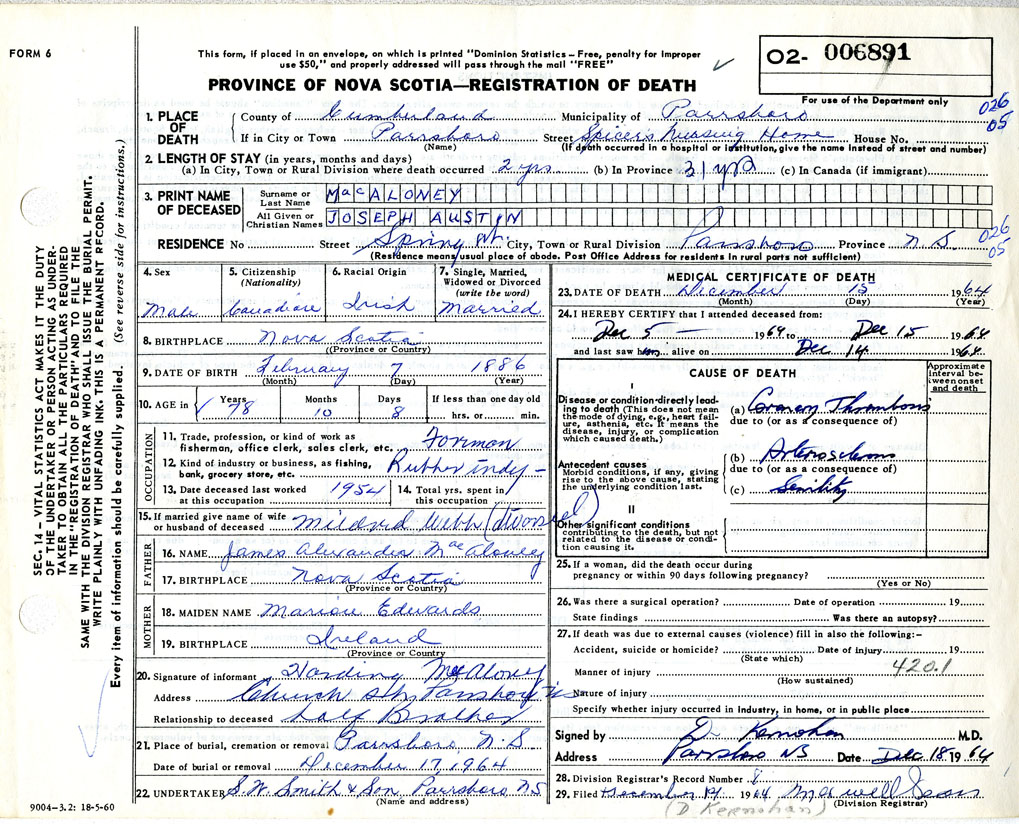 FORM 6
This form, if placed in an envelope, on which is printed "Dominion Statistics – Free, penalty for improper
use $50," and properly addressed will pass through the mail "FREE"
02- 006891
PROVINCE OF NOVA SCOTIA—REGISTRATION OF DEATH
For use of the Department only
026
05
1. PLACE OF DEATH County of Cumberland Municipality of Parrsboro
If in City or Town Parrsboro Street Spicer's Nursing Home House No.
(Name) (If death occurred in a hospital or institution, give the name instead of street and number)
2. LENGTH OF STAY (in years, months and days)
(a) In City, Town or Rural Division where death occurred 2 yrs (b) In Province (c) In Canada (if immigrant)
3. PRINT NAME OF DECEASED Surname or Last Name MacALONEY
All Given or Christian Names JOSEPH AUSTIN
RESIDENCE No Street Spring St. City, Town or Rural Division Parrsboro Province N.S.
026
05
(Residence means usual place of abode. Post Office Address for residents in rural parts not sufficient)
4. Sex Male
5. Citizenship (Nationality) Canadian
6. Racial Origin Irish
7. Single, Married, Widowed or Divorced (write the word) Married
8. BIRTHPLACE Nova Scotia
(Province or Country)
9. DATE OF BIRTH February 7 1886
(Month) (Day) (Year)
10. AGE in Years 78 Months 10 Days 8 If less than one day old hrs. or min.
OCCUPATION
11. Trade, profession, or kind of work as
fisherman, office clerk, sales clerk, etc. Forman
12. Kind of industry or business, as fishing,
bank, grocery store, etc. Rubber indy -
13. Date deceased last worked at this occupation 1954
14. Total yrs. spent in this occupation
15. If married give name of wife
or husband of deceased Mildred Webb (divorsed)
FATHER
16. NAME James Alexander MacAloney
17. BIRTHPLACE Nova Scotia
(Province or Country)
MOTHER
18. MAIDEN NAME Marion Edwards
19. BIRTHPLACE Ireland
(Province or Country
20. Signature of informant Harding McAloney
Address Church St., Parrsboro N.S.
Relationship to deceased half Brother
21. Place of burial, cremation or removal Parrsboro, N.S
Date of burial or removal December 17, 1964
22. UNDERTAKER S.W. Smith & Son Parrsboro NS
(Name and address)
MEDICAL CERTIFICATE OF DEATH
23. DATE OF DEATH December 15 1964
(Month) (Day) (Year)
24. I HEREBY CERTIFY that I attended deceased from:
Dec 5 — 1964 to Dec 15 1964
and last saw him alive on Dec 14 1964
CAUSE OF DEATH
Approximate interval between onset and death
I
Disease or condition directly leading to death (This does not mean the mode of dying, e.g., heart failure, asthenia, etc. It means the disease, injury, or complication which caused death.)
(a) Coronary Thrombosis
due to (or as a consequence of)
Antecedent causes
Morbid conditions, if any, giving rise to the above cause, stating the underlying condition last.
(b) Arteriosclerosis
due to (or as a consequence of)
(c) Senility
II
Other significant conditions
contributing to the death, but not related to the disease or condition causing it.
25. If a woman, did the death occur during
pregnancy or within 90 days following pregnancy?
(Yes or No)
26. Was there a surgical operation? Date of operation 19
State findings Was there an autopsy?
27. If death was due to external causes (violence) fill in also the following:–
Accident, suicide or homicide? Date of injury 19
(State which)
420.1
Manner of injury
(How sustained)
Nature of injury
Specify whether injury occurred in industry, in home, or in public place
Signed by D Kernohan M.D.
Address Parrsboro NS Date Dec 18 1964
28. Division Registrar's Record Number
29. Filed December 19 1964
(D. Kernohan) (Division Registrar)
SEC. 14 – VITAL STATISTICS ACT MAKES IT THE DUTY
OF THE UNDERTAKER OR PERSON ACTING AS UNDERTAKER TO OBTAIN ALL THE PARTICULARS REQUIRED
IN THE "REGISTRATION OF DEATH" AND TO FILE THE
SAME WITH THE DIVISION REGISTRAR WHO SHALL ISSUE THE BURIAL PERMIT.
WRITE PLAINLY WITH UNFADING INK. THIS IS A PERMANENT RECORD.
Every item of information should be carefully supplied. (See reverse side for instructions.)
9004–3.2: 18-5-60